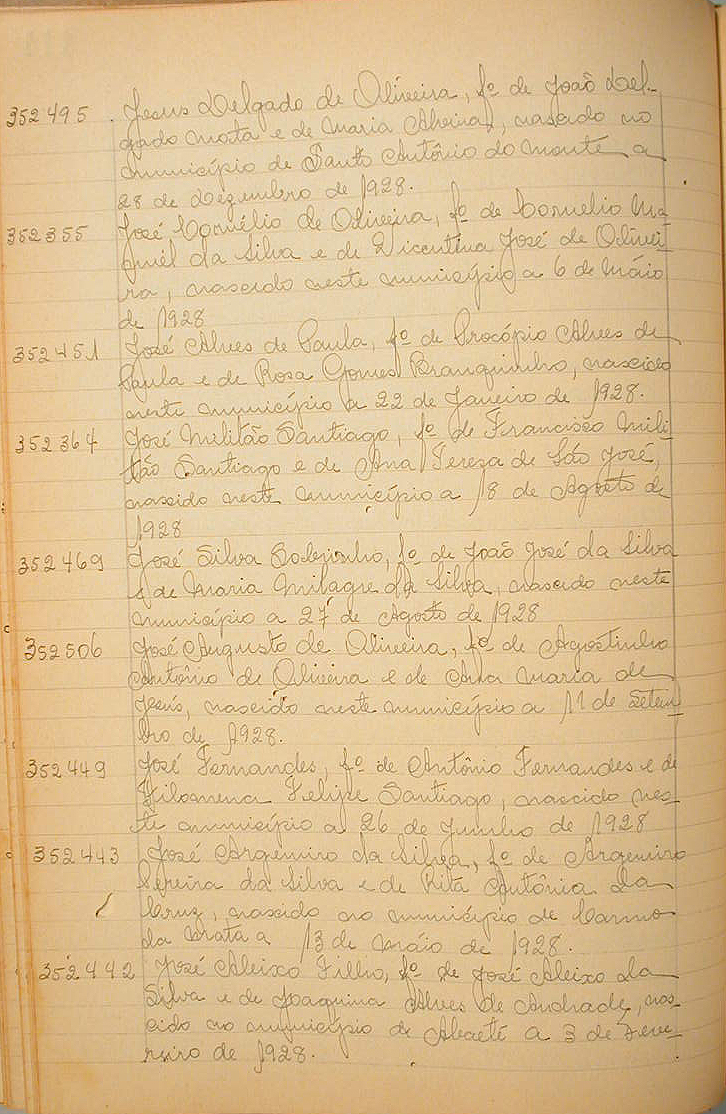 352495 Jesus Delgado de Oliveira, fº de João Del-
gado Mota e de Maria, nascido no
município de Santo Antônio do Monte a
28 de Dezembro de 1928.
352355 José Cornélio de Oliveira, fº de Cornelio Mi-
guel da Silva e de Vicentina José de Olivei-
ra, nascido neste município a 6 de Máio
de 1928
352451 José Alves de Paula, fº de Procópio Alves de
Paula e de Rosa Gomes Branquinho, nascido
neste município a 22 de Janeiro de 1928.
352364 José Militão Santiago, fº de Francisco Mili-
tão Santiago e de Ana Tereza de São José,
nascido neste município a 18 de Agosto de
1928
352469 José Silva Sobrinho, fº de João José da Silva
e de Maria Milagre da Silva, nascido neste
município a 27 de Agosto de 1928
352506 José Augusto de Oliveira, fº de Agostinho
Antônio de Oliveira e de Ana Maria de
Jesús, nascido neste município a 11 de Setem-
bro de 1928.
352449 José Fernandes, fº de Antônio Fernandes e de
Filomena Felipe Santiago, nascido nes-
te município a 26 de Junho de 1928
352443 José Argemiro da Silva, fº de Argemiro
Pereira da Silva e de Rita Antônia da
Cruz, nascido no município de Carmo
da Mata a 13 de Máio de 1928.
352442 José Aleixo Filho, fº de José Aleixo da
Silva e de Joaquina Alves de Andrade, nas-
cido no município de Abaeté a 3 de Feve-
reiro de 1928.